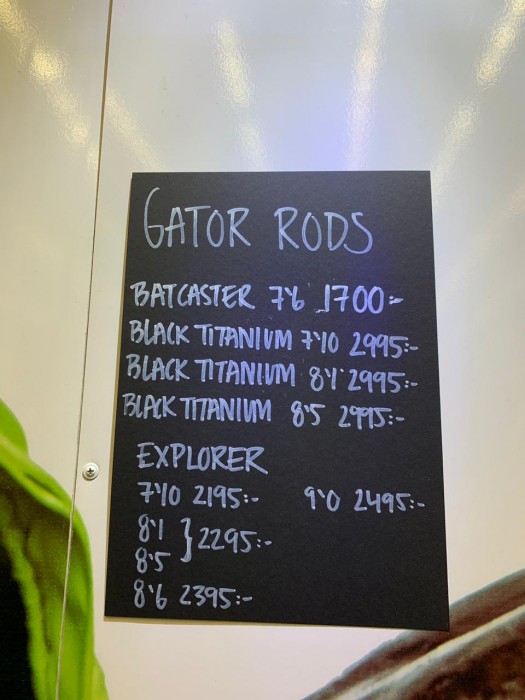 GATOR RODS
BATCASTER 7'6 1700:-
BLACK TITANIUM 7'10 2995:-
BLACK TITANIUM 8'1 2995:-
BLACK TITANIUM 8'5 2995:-
EXPLORER
7'10 2195:- 9'0 2495:-
8'1
8'5 } 2295:-
8'6 2395:-